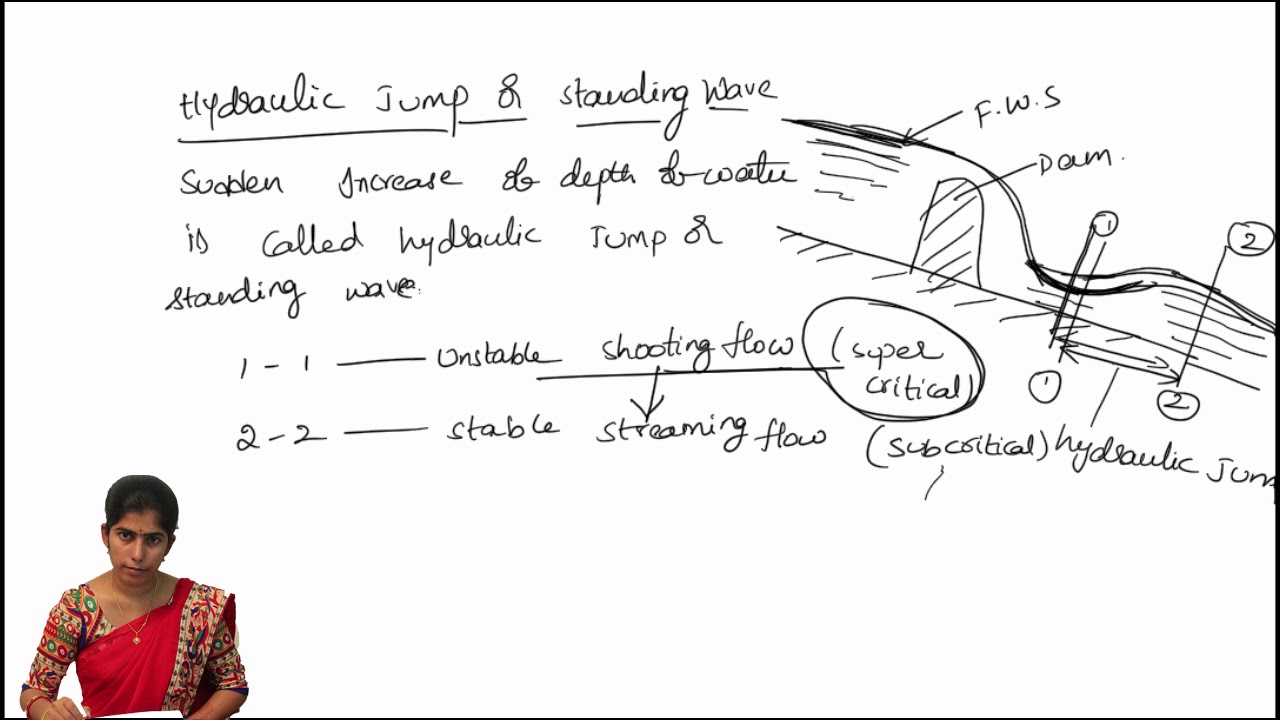 Hydraulic Jump or standing wave
sudden increase of depth of water
is called hydraulic Jump or
standing wave.
1 - 1 —— Unstable shooting flow (super critical)
2 - 2 —— stable streaming flow (subcritical)
F.W.S
Dam.
1
2
1
2
hydraulic Jum